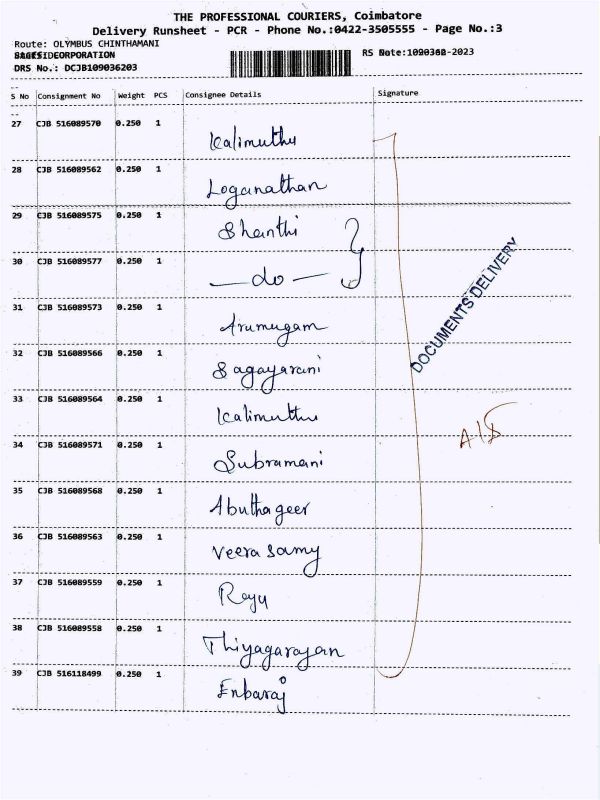 THE PROFESSIONAL COURIERS, Coimbatore
Delivery Runsheet - PCR - Phone No.:0422-3505555 - Page No.:3
Route: OLYMBUS CHINTHAMANI
CORPORATION
DRS No.: DCJB109036203
S No Consignment No Weight PCS Consignee Details Signature
27 CJB 516089570 0.250 1 Kalimuthu
28 CJB 516089562 0.250 1 Loganathan
29 CJB 516089575 0.250 1 Shanthi
30 CJB 516089577 0.250 1 — do —
31 CJB 516089573 0.250 1 Arumugam
32 CJB 516089566 0.250 1 Sagayarani
33 CJB 516089564 0.250 1 Kalimuthu
34 CJB 516089571 0.250 1 Subramani
35 CJB 516089568 0.250 1 Abuthageer
36 CJB 516089563 0.250 1 Veera samy
37 CJB 516089559 0.250 1 Raju
38 CJB 516089558 0.250 1 Thiyagarajan
39 CJB 516118499 0.250 1 Enbaraj
DOCUMENTS DELIVERY